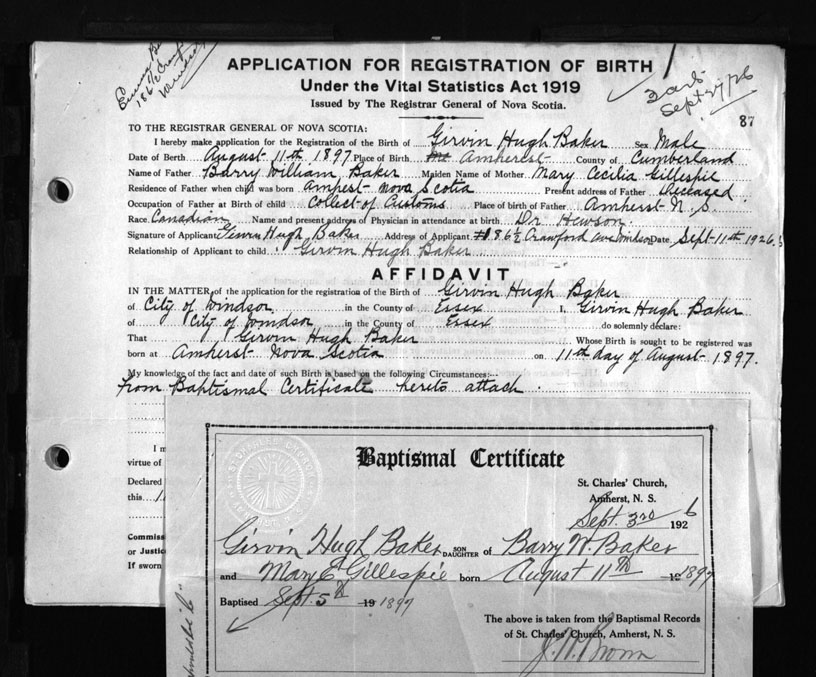 APPLICATION FOR REGISTRATION OF BIRTH
Under the Vital Statistics Act 1919
Issued by The Registrar General of Nova Scotia.
Sept 27/26
87
TO THE REGISTRAR GENERAL OF NOVA SCOTIA:
I hereby make application for the Registration of the Birth of Girvin Hugh Baker Sex Male
Date of Berth August 11th 1897 Place of Birth Amherest County of Cumberland
Name of Father Barry William Baker Maiden Name of Mother Mary Cecilia Gillespie
Residence of Father when child was born Ampest- Nova Scotia Present address of Father Deceased
Occupation of Father at Birth of child Collect-of Customs Place of birth of Father Amherst N.S.
Race Canadian Name and present address of Physician in attendance at birth Dr. Hewson.
Signature of Applicant Girvin Hugh Baker Address of Applicant #186½ Crawford Ave Windsor Date Sept-11th 1926
Relationship of Applicant to child Girvin Hugh Baker
AFFIDAVIT
IN THE MATTER of the application for the registration of the Birth of Girvin Hugh Baker
of City of Windsor in the County of Essex I, Girvin Hugh Baker
of City of Windsor in the County of Essex do solemnly declare:
That I Girvin Hugh Baker Whose Birth is sought to be registered was
born at Amherst- Nova Scotia on 11th day of August- 1897.
My knowledge of the fact and date of such Birth is based on the following Circumstances:--
From Baptismal Certificate hereto attach.
I m
virtue of
Declared
this
Commiss
or Justic
If sworn
Baptismal Certificate
St. Charles' Church,
Amherst, N. S.
Sept. 3rd 1926
Girvin Hugh Baker SON DAUGHTER of Barry W. Baker
and Mary C Gillespie born August 11th 1897
Baptised Sept. 5th 19 1897
The above is taken from the Baptismal Records
of St. Charles' Church, Amherst, N. S.
J. W. Brown